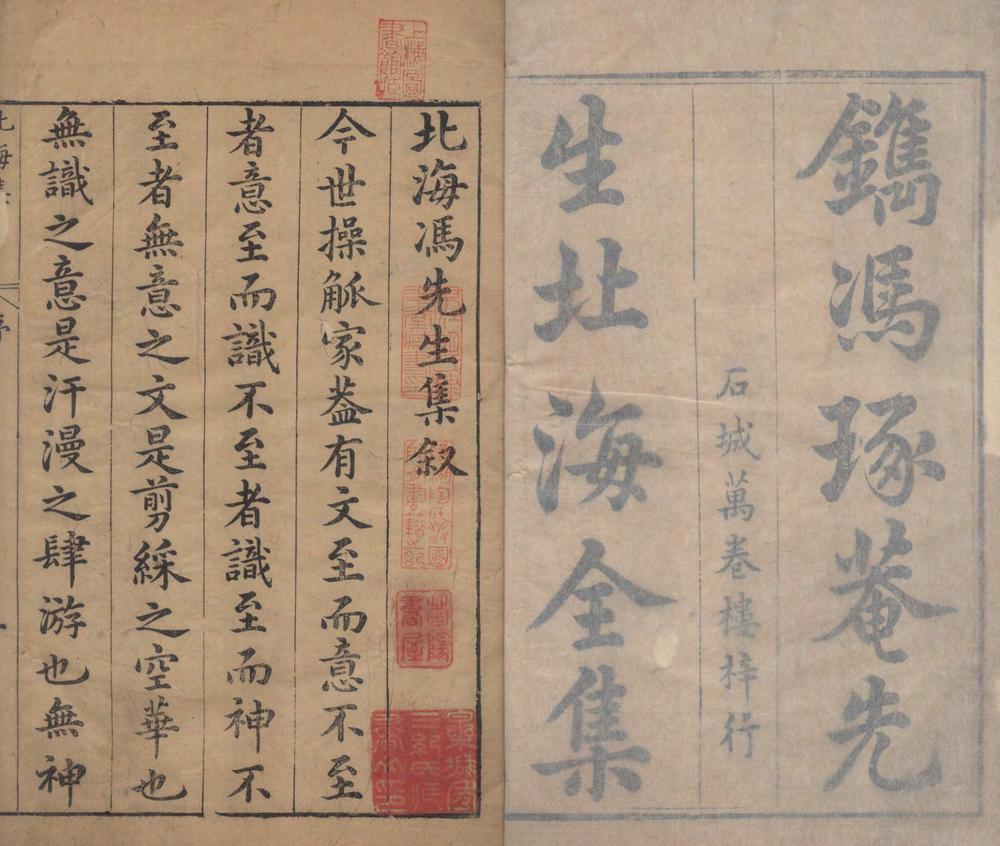 鐫馮琢菴先
石城萬卷樓梓行
生北海全集
上海圖書館藏
北海馮先生集敘
今世操觚家葢有文至而意不至
者意至而識不至者識至而神不
至者無意之文是剪綵之空華也
無識之意是汗漫之肆游也無神
北海集
序